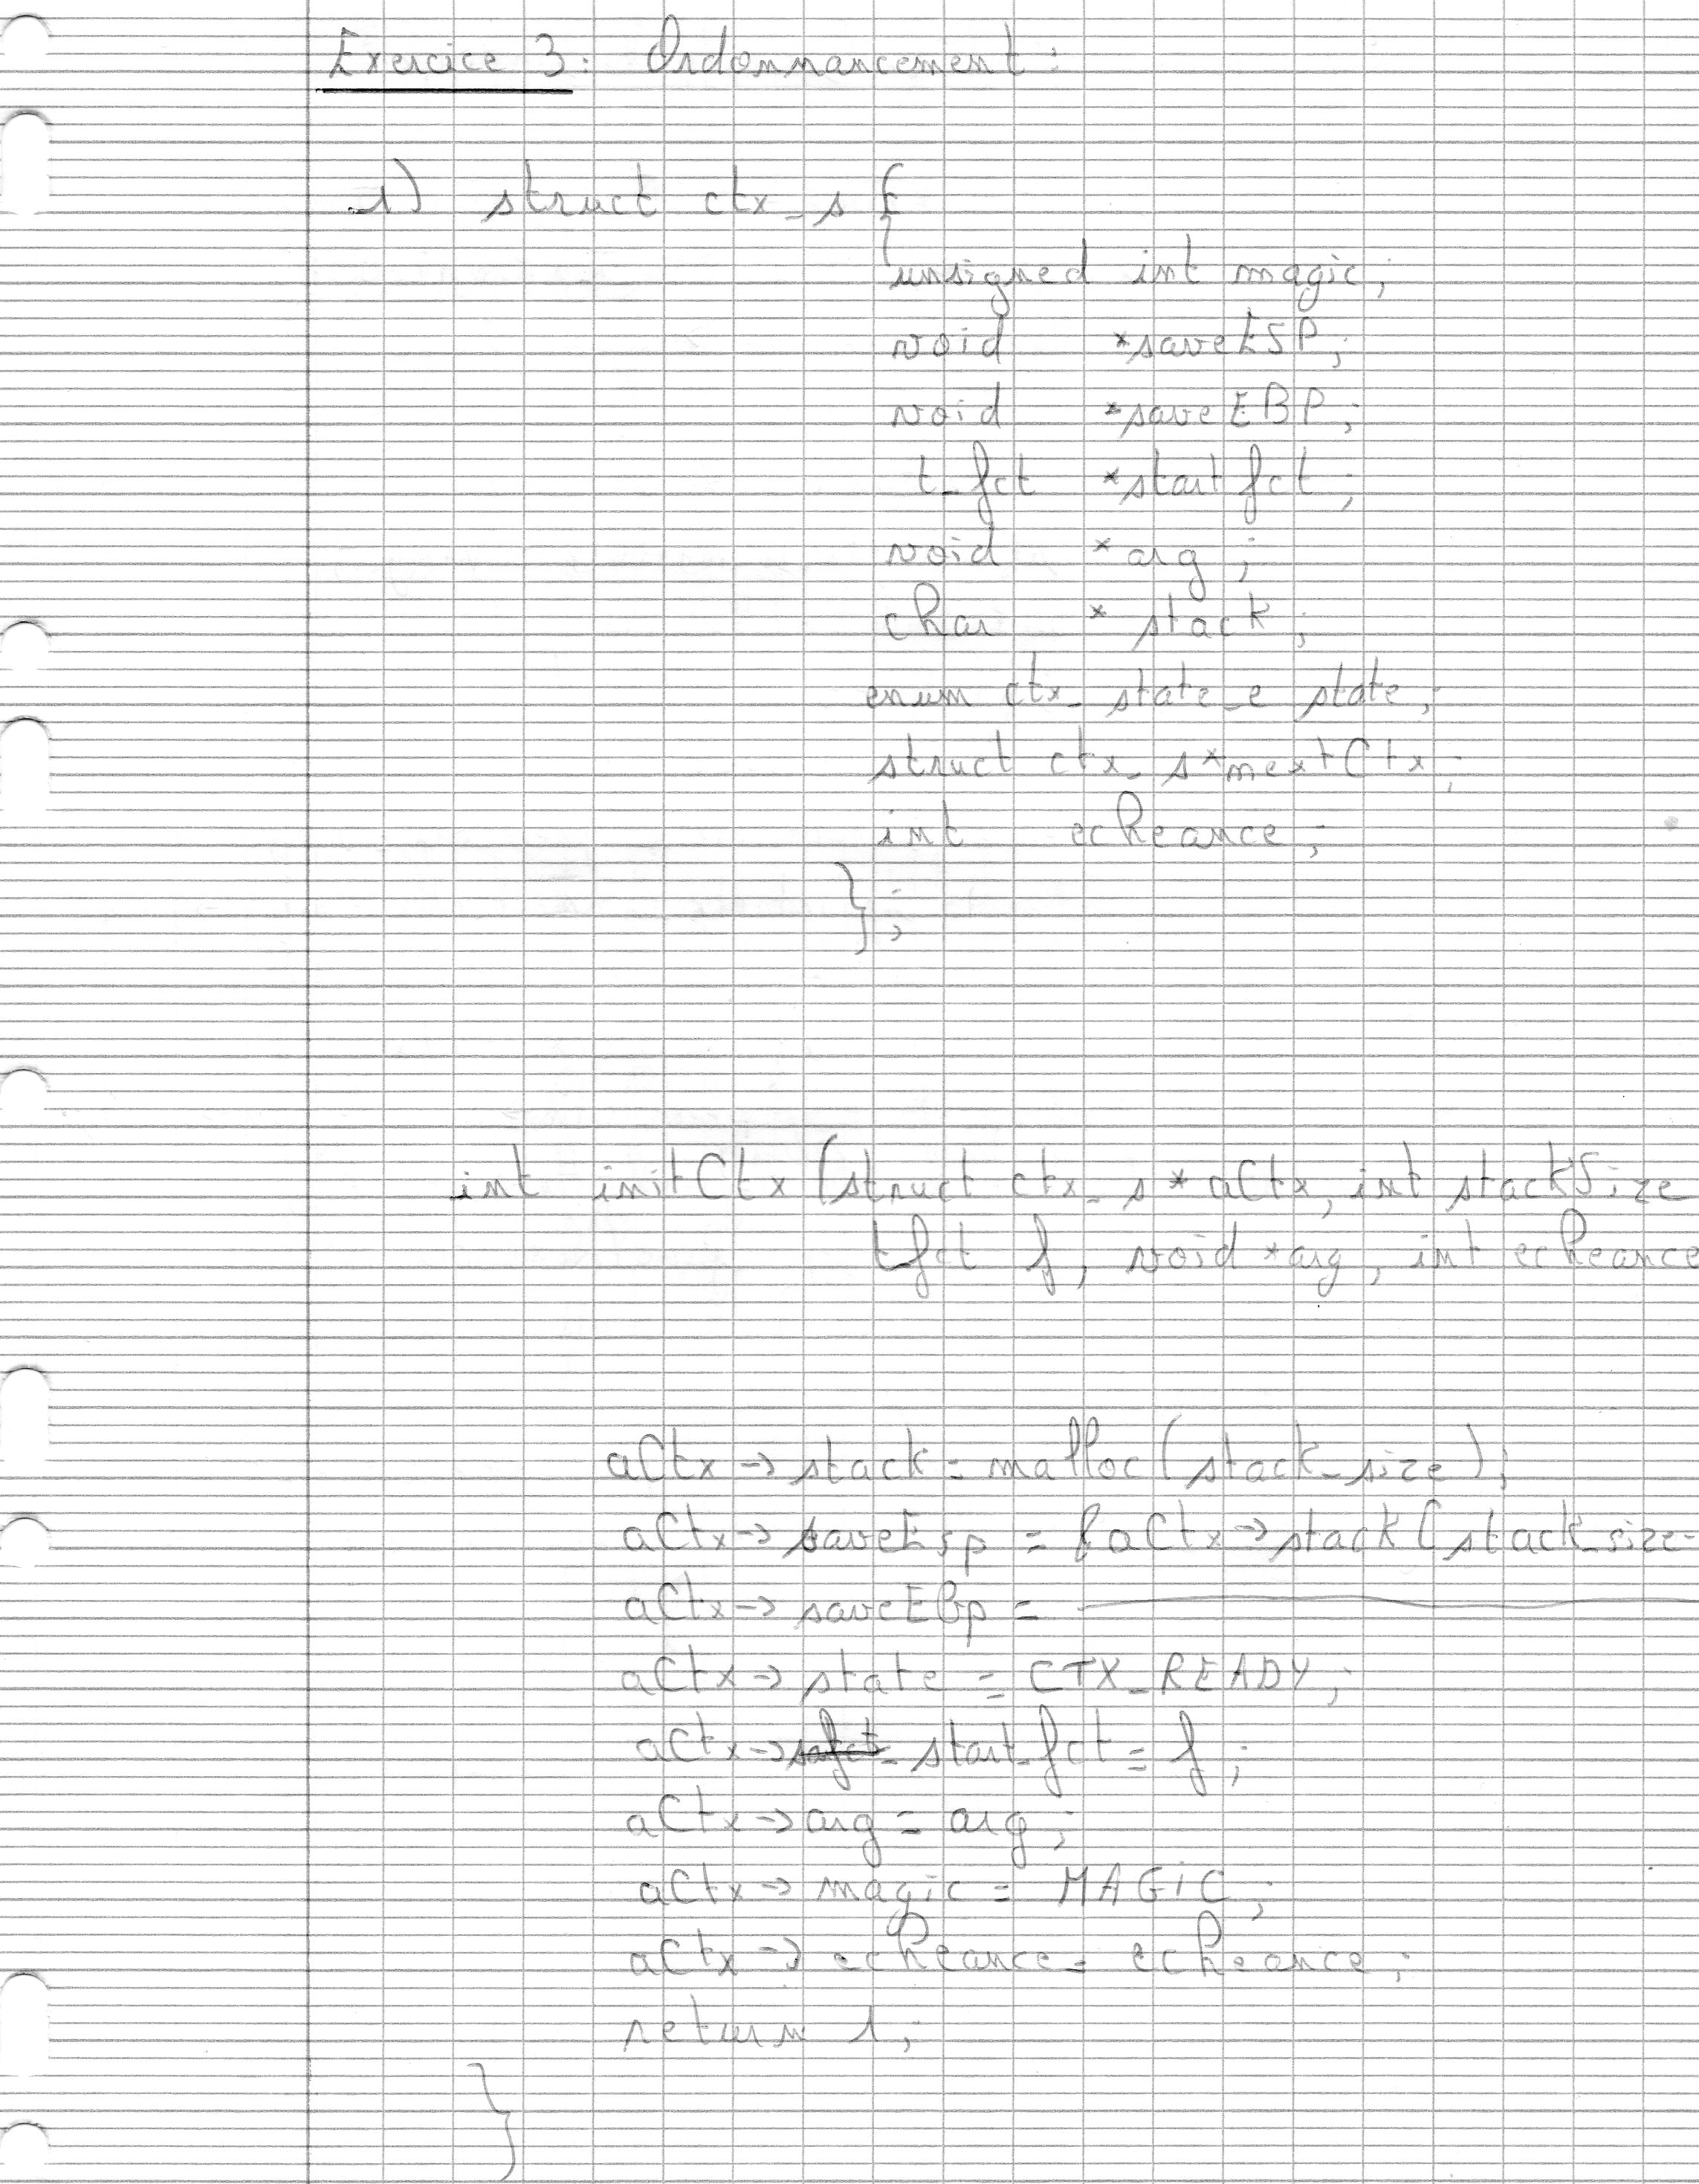 Exercice 3: Ordonnancement:
1) struct ctx_s {
unsigned int magic;
void *saveESP;
void *saveEBP;
t_fct *startfct;
void *arg;
char *stack;
enum ctx_state_e state;
struct ctx_s *nextCtx;
int echeance;
};
int initCtx (struct ctx_s * aCtx, int stackSize
tfct f, void *arg, int echeance
aCtx -> stack = malloc (stack_size);
aCtx -> saveEsp = & aCtx -> stack [stack_size-
aCtx -> saveEbp = ———
aCtx -> state = CTX_READY;
aCtx -> start_fct = f;
aCtx -> arg = arg;
aCtx -> magic = MAGiC;
aCtx -> echeance = echeance;
return 1;
}